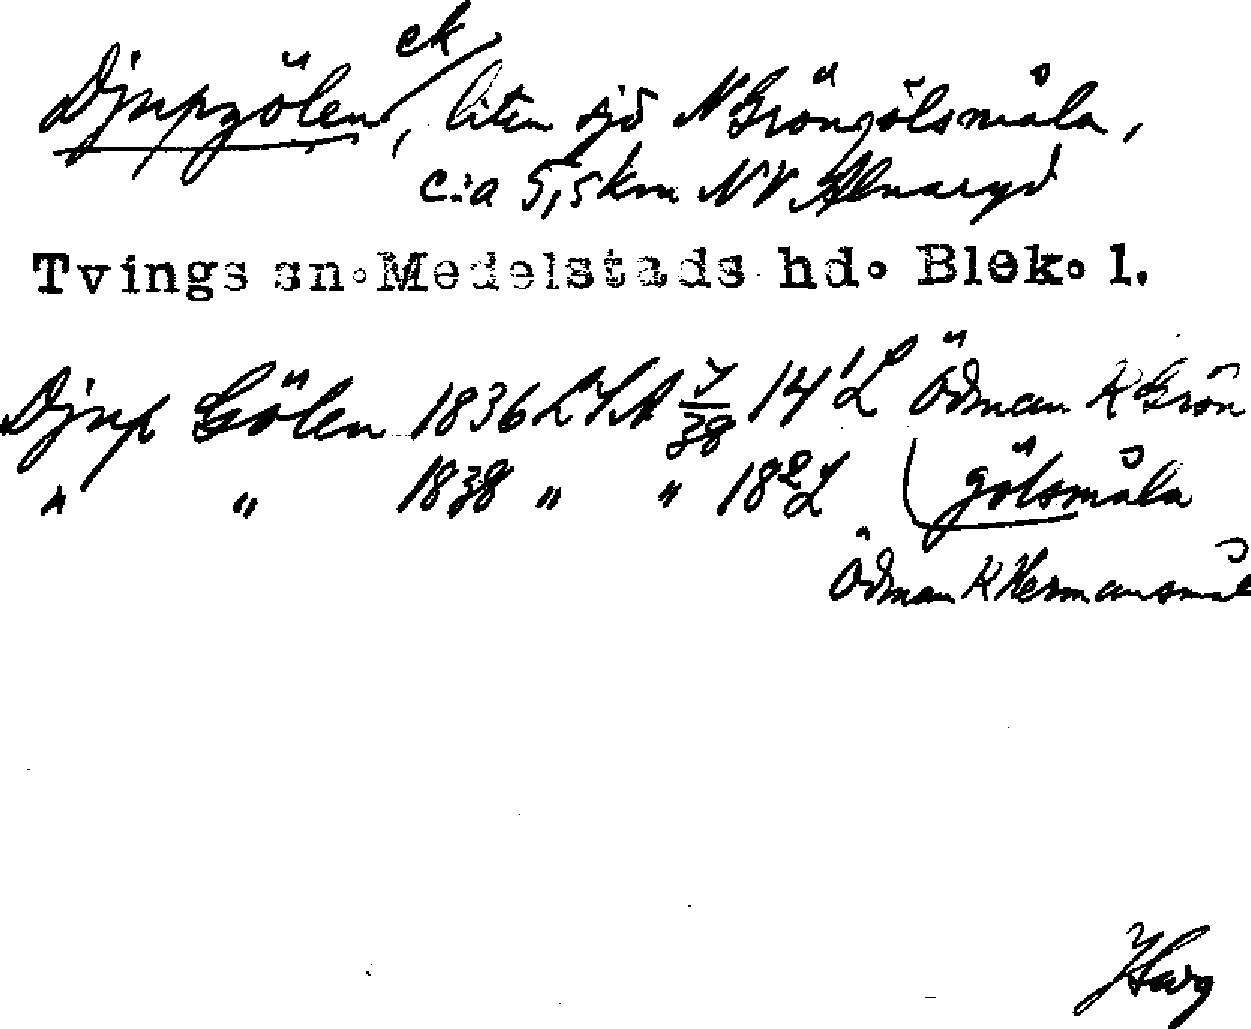 ek
Djupgölen, liten sjö N Gröngölsmåla,
c:a 5,5 km NV Alnaryd
Tvings sn. Medelstads hd. Blek. l.
Djup Gölen 1836 LSA 7/38 14¹ L Ödman K Grön
" " 1838 " " 18² L gölsmåla
Ödman K Hermansmål